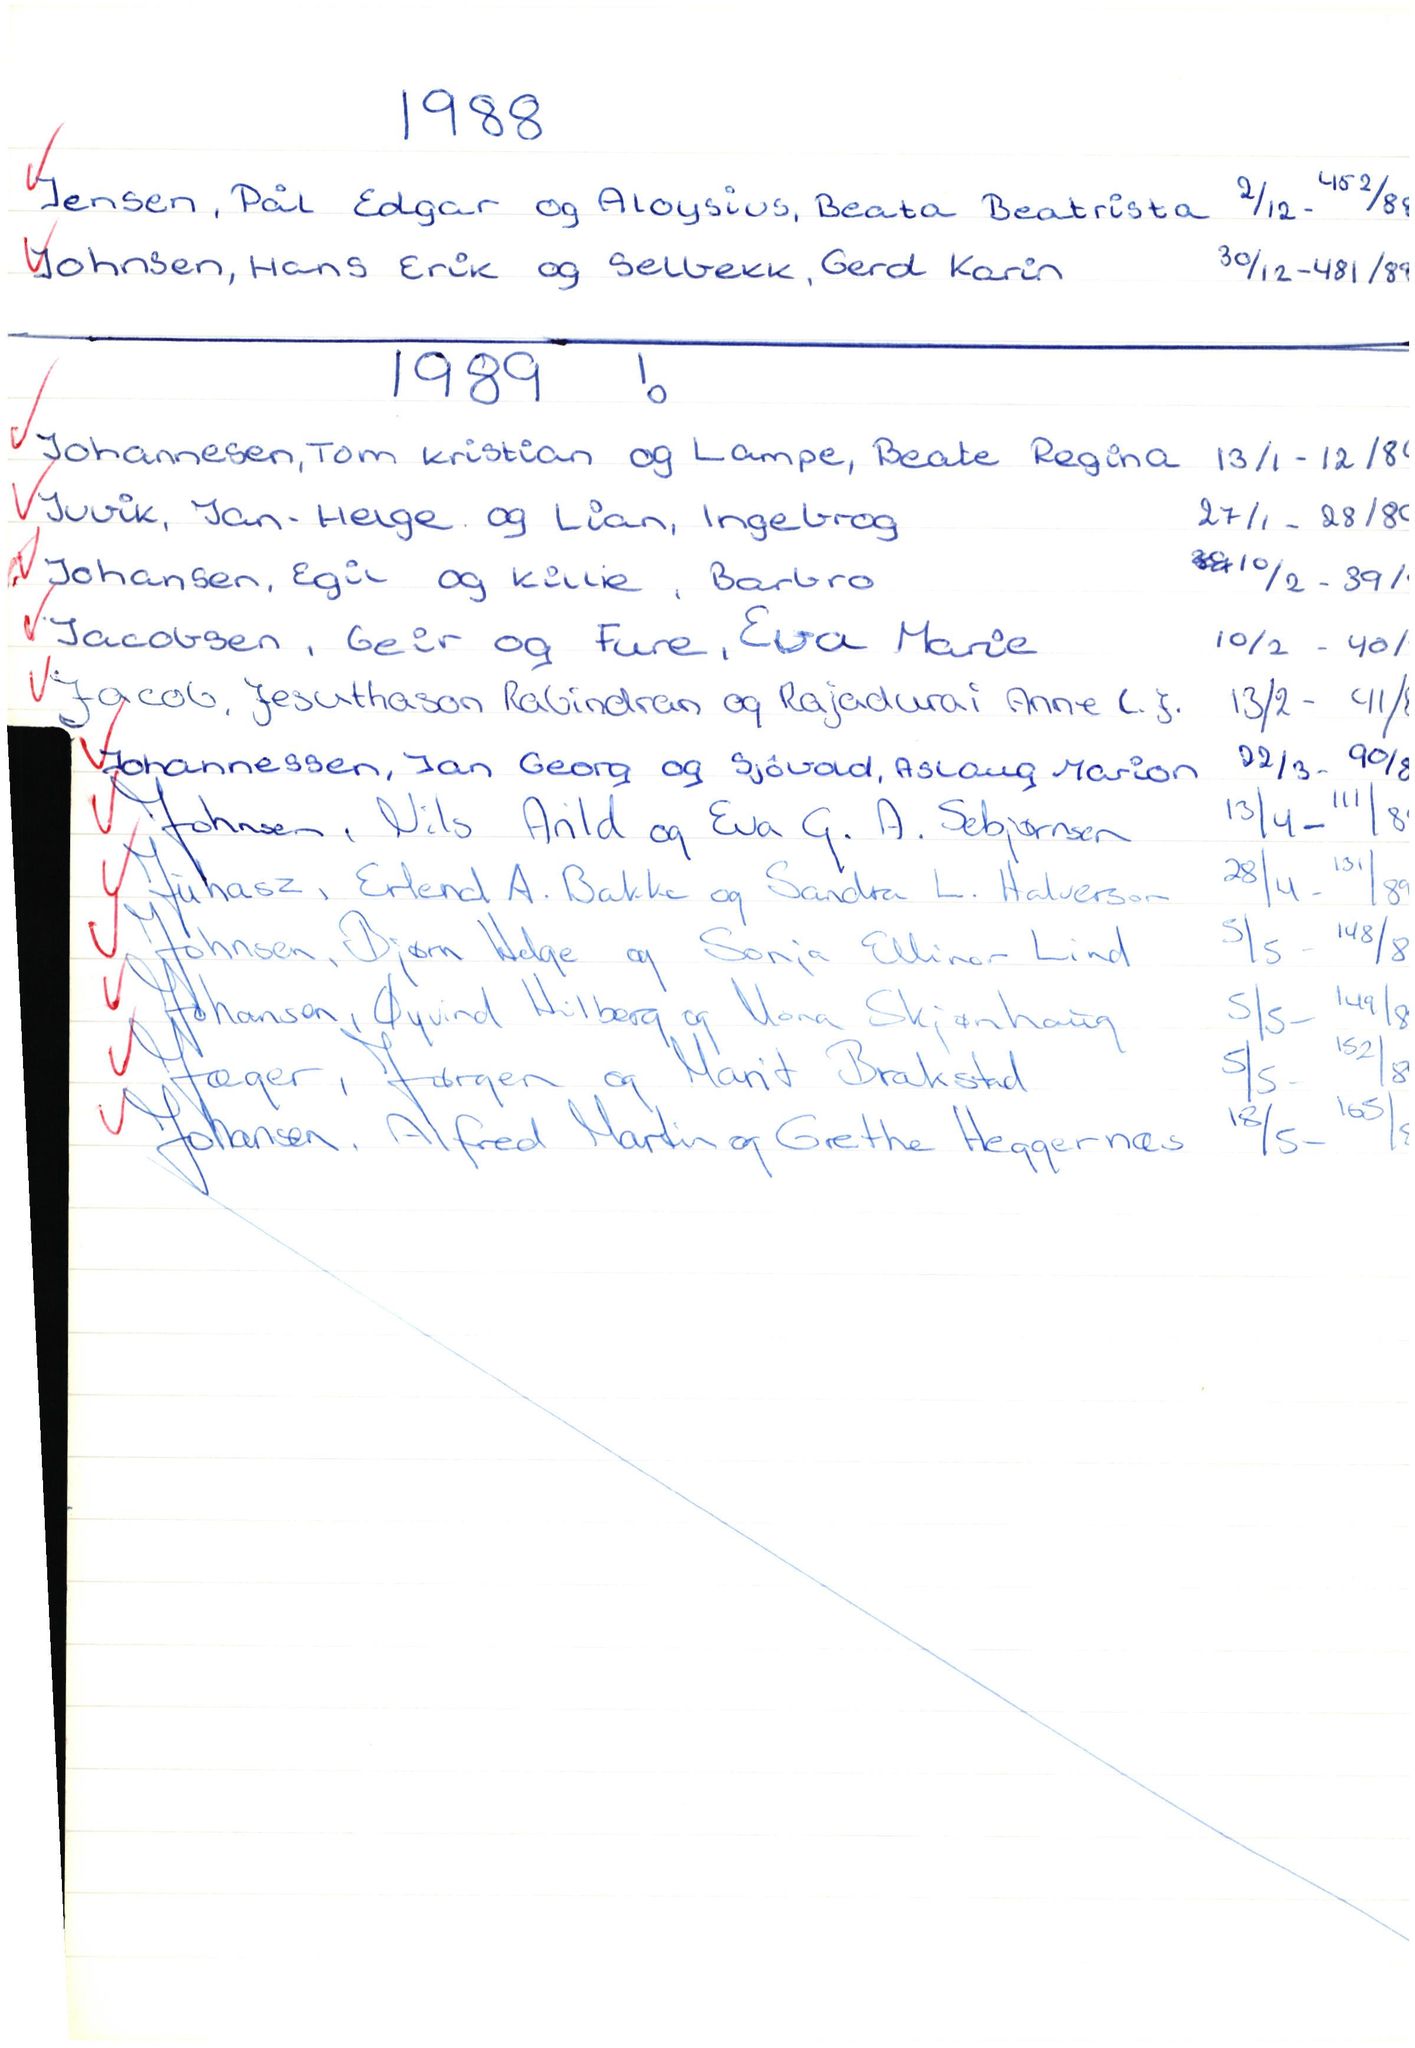 1988
Jensen, Pål Edgar og Aloysius, Beata Beatrista 2/12 - 452/88
Johnsen, Hans Erik og Selbekk, Gerd Karin 30/12 - 481/88
1989 !
Johannesen, Tom Kristian og Lampe, Beate Regina 13/1 - 12/89
Juvik, Jan-Helge og Lian, Ingebrog 27/1 - 28/89
Johansen, Egil og Killie, Barbro 10/2 - 39/
Jacobsen, Geir og Fure, Eva Marie 10/2 - 40/
Jacob, Jesuthason Rabindran og Rajadurai Anne C. J. 13/2 - 41/8
Johannessen, Jan Georg og Sjövold, Aslaug Marion 22/3 - 90/8
Johnsen, Nils Arild og Eva G. A. Sebjørnsen 13/4 - 111/8
Juhasz, Erlend A. Bakke og Sandra L. Halverson 28/4 - 131/89
Johnsen, Bjørn Helge og Sonja Ellinor Lind 5/5 - 148/8
Johansen, Øyvind Hilberg og Mona Skjønhaug 5/5 - 149/8
Jæger, Jørgen og Marit Brakstad 5/5 - 152/8
Johansen, Alfred Martin og Grethe Heggernæs 18/5 - 165/8